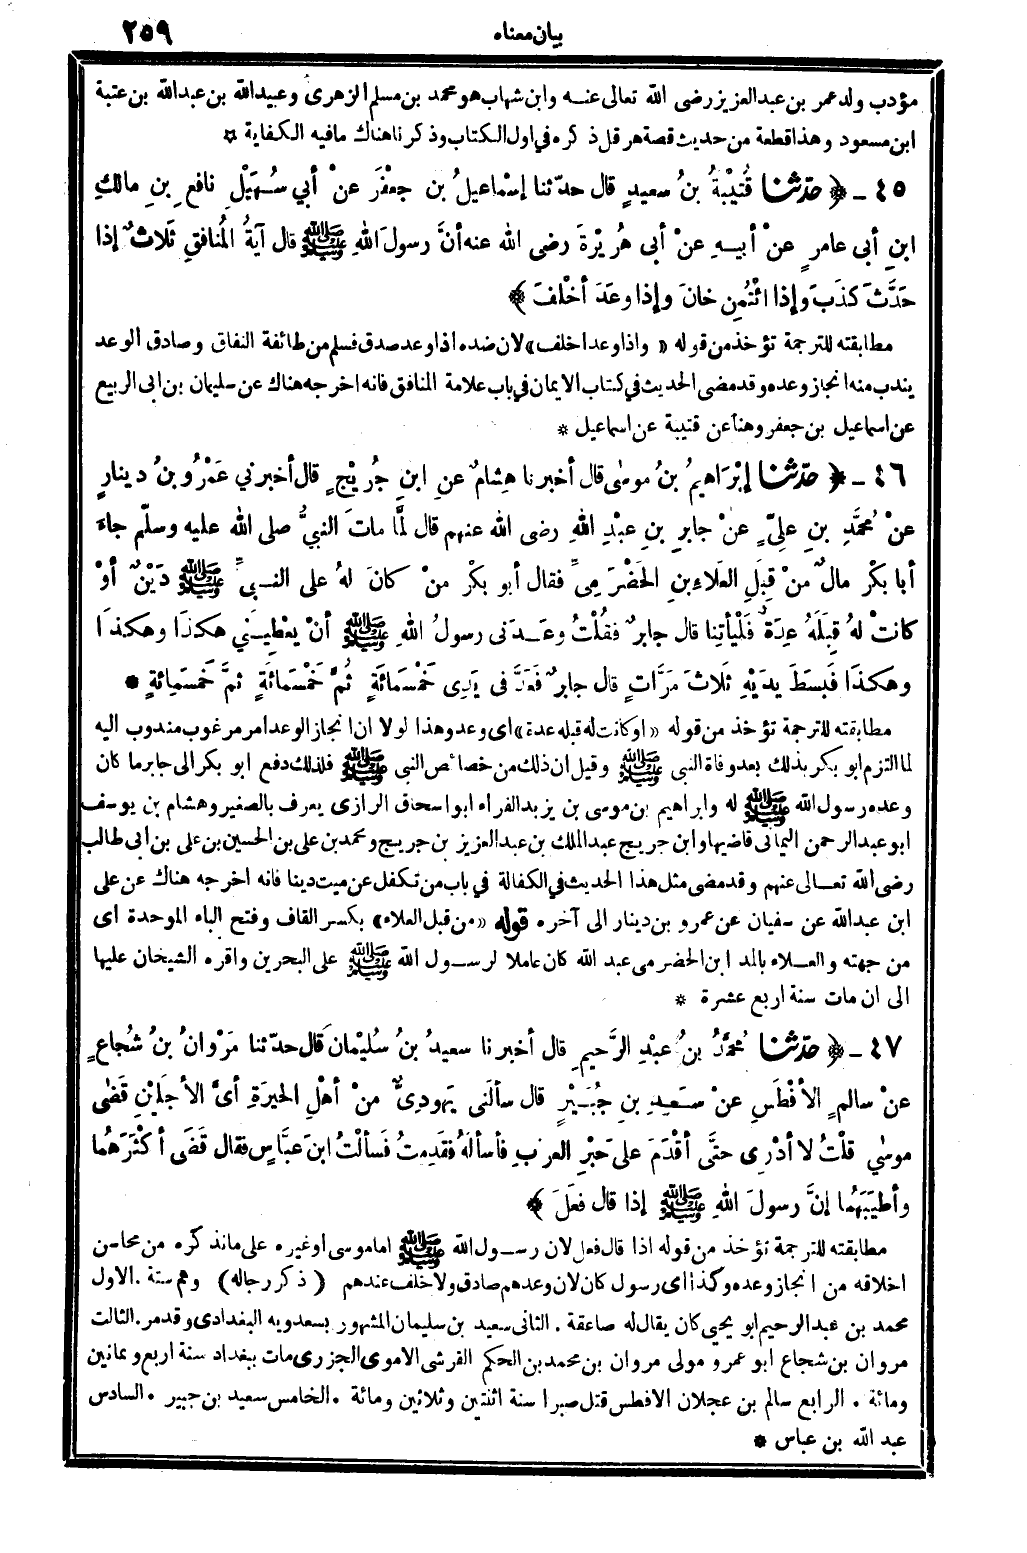 بيان معناه ٢٥٩
مؤدب ولد عمر بن عبد العزيز رضى الله تعالى عنه وابن شهاب هو محمد بن مسلم الزهرى وعبيد الله بن عبد الله بن عتبة
ابن مسعود وهذا قطعة من حديث قصة هرقل ذكره فى اول الكتاب وذكرنا هناك ما فيه الكفاية *
٤٥ - ﴿ حدّثنا قُتَيْبَةُ بنُ سعيدٍ قال حدّثنا إسْماعيلُ بن جعْفَرَ عنْ أبي سُهَيْلٍ نافع ِ بنِ مالكِ
ابنِ أبي عامرٍ عنْ أبيهِ عنْ أبى هُرَيْرةَ رضى الله عنه أنَّ رسولَ اللهِ ﷺ قال آيةُ المُنافقِ ثَلاثٌ إذا
حَدَّثَ كذَبَ وإذا ائْتُمِن خانَ وإذا وعَدَ أخْلفَ ﴾
مطابقته للترجمة تؤخذ من قوله «واذا وعد اخلف» لان ضده اذا وعد صدق فسلم من طائفة النفاق وصادق الوعد
يندب منه انجاز وعده وقد مضى الحديث فى كتاب الايمان فى باب علامة المنافق فانه اخرجه هناك عن سليمان بن ابى الربيع
عن اسماعيل بن جعفر وهنا عن قتيبة عن اسماعيل *
٤٦ - ﴿ حدّثنا إبْرَاهيمُ بنُ موسٰى قال أخبرنا هِشامٌ عنِ ابنِ جُرَيْجٍ قال أخبرني عَمْرُو بنُ دينارٍ
عنْ مُحمَّدِ بنِ علِىٍّ عنْ جابرِ بنِ عبْدِ اللهِ رضى الله عنهم قال لمَّا ماتَ النبيُّ صلى الله عليه وسلّم جاءَ
أبا بكْر مالٌ منْ قِبَلِ العَلاءِ بنِ الحَضْرَمِيِّ فقال أبو بكْر منْ كانَ لهُ على النبىِّ ﷺ دَيْنٌ أوْ
كانتْ لهُ قِبَلَهُ عِدَةٌ فَلْيأتِنا قال جابرٌ فقُلْتُ وعَدَنى رسولُ اللهِ ﷺ أنْ يُعْطِيَني هكذَا وهكذَا
وهكذَا فَبسَطَ يدَيْهِ ثَلاثَ مَرَّاتٍ قال جابرٌ فَعَدَّ فى يَدِى خَمْسَمائَةٍ ثُمَّ خَمْسَمائَةٍ ثمَّ خَمسَمِائةٍ *
مطابقته للترجمة تؤخذ من قوله «او كانت له قبله عدة» اى وعد وهذا لولا ان انجاز الوعد امر مرغوب مندوب اليه
لما التزم ابو بكر بذلك بعد وفاة النبى ﷺ وقيل ان ذلك من خصائص النبى ﷺ فلذلك دفع ابو بكر الى جابر ما كان
وعده رسول الله ﷺ له وابراهيم بن موسى بن يزيد الفراء ابو اسحاق الرازى يعرف بالصغير وهشام بن يوسف
ابو عبد الرحمن اليمانى قاضيها وابن جريج عبد الملك بن عبد العزيز بن جريج ومحمد بن على بن الحسين بن على بن ابى طالب
رضى الله تعالى عنهم وقد مضى مثل هذا الحديث فى الكفالة فى باب من تكفل عن ميت دينا فانه اخرجه هناك عن على
ابن عبد الله عن سفيان عن عمرو بن دينار الى آخره قوله «من قبل العلاء» بكسر القاف وفتح الباء الموحدة اى
من جهته والعلاء بالمد ابن الحضرمى عبد الله كان عاملا لرسول الله ﷺ على البحرين واقره الشيخان عليها
الى ان مات سنة اربع عشرة *
٤٧ - ﴿ حدّثنا مُحمَّدُ بنُ عبْدِ الرَّحيمِ قال أخبرنا سعيدُ بنُ سُليْمانَ قال حدّثنا مَرْوانُ بنُ شُجاعٍ
عنْ سالمٍ الأفْطَسِ عنْ سَعيدِ بنِ جُبَيْرٍ قال سألَنى يَهودِىٌّ منْ أهْلِ الحِيرَةِ أىَّ الأجلَيْنِ قَضٰى
موسٰي قلْتُ لا أدْرِى حتَّى أقْدَمَ على حَبْرِ العرَبِ فأسألَهُ فقَدِمتُ فَسألْتُ ابنَ عبَّاسٍ فقال قَضَى أكْثَرَهُما
وأطيَبَهُما إنَّ رسولَ اللهِ ﷺ إذا قال فعَلَ ﴾
مطابقته للترجمة تؤخذ من قوله اذا قال فعل لان رسول الله ﷺ اما موسى او غيره على ما نذكره من محاسن
اخلاقه من انجاز وعده وكذا اى رسول كان لان وعدهم صادق ولا خلف عندهم (ذكر رجاله) وهم ستة . الاول
محمد بن عبد الرحيم ابو يحيى كان يقال له صاعقة . الثانى سعيد بن سليمان المشهور بسعدويه البغدادى وقد مر . الثالث
مروان بن شجاع ابو عمرو مولى مروان بن محمد بن الحكم القرشى الاموى الجزرى مات ببغداد سنة اربع وثمانين
ومائة . الرابع سالم بن عجلان الافطس قتل صبرا سنة اثنتين وثلاثين ومائة . الخامس سعيد بن جبير . السادس
عبد الله بن عباس *